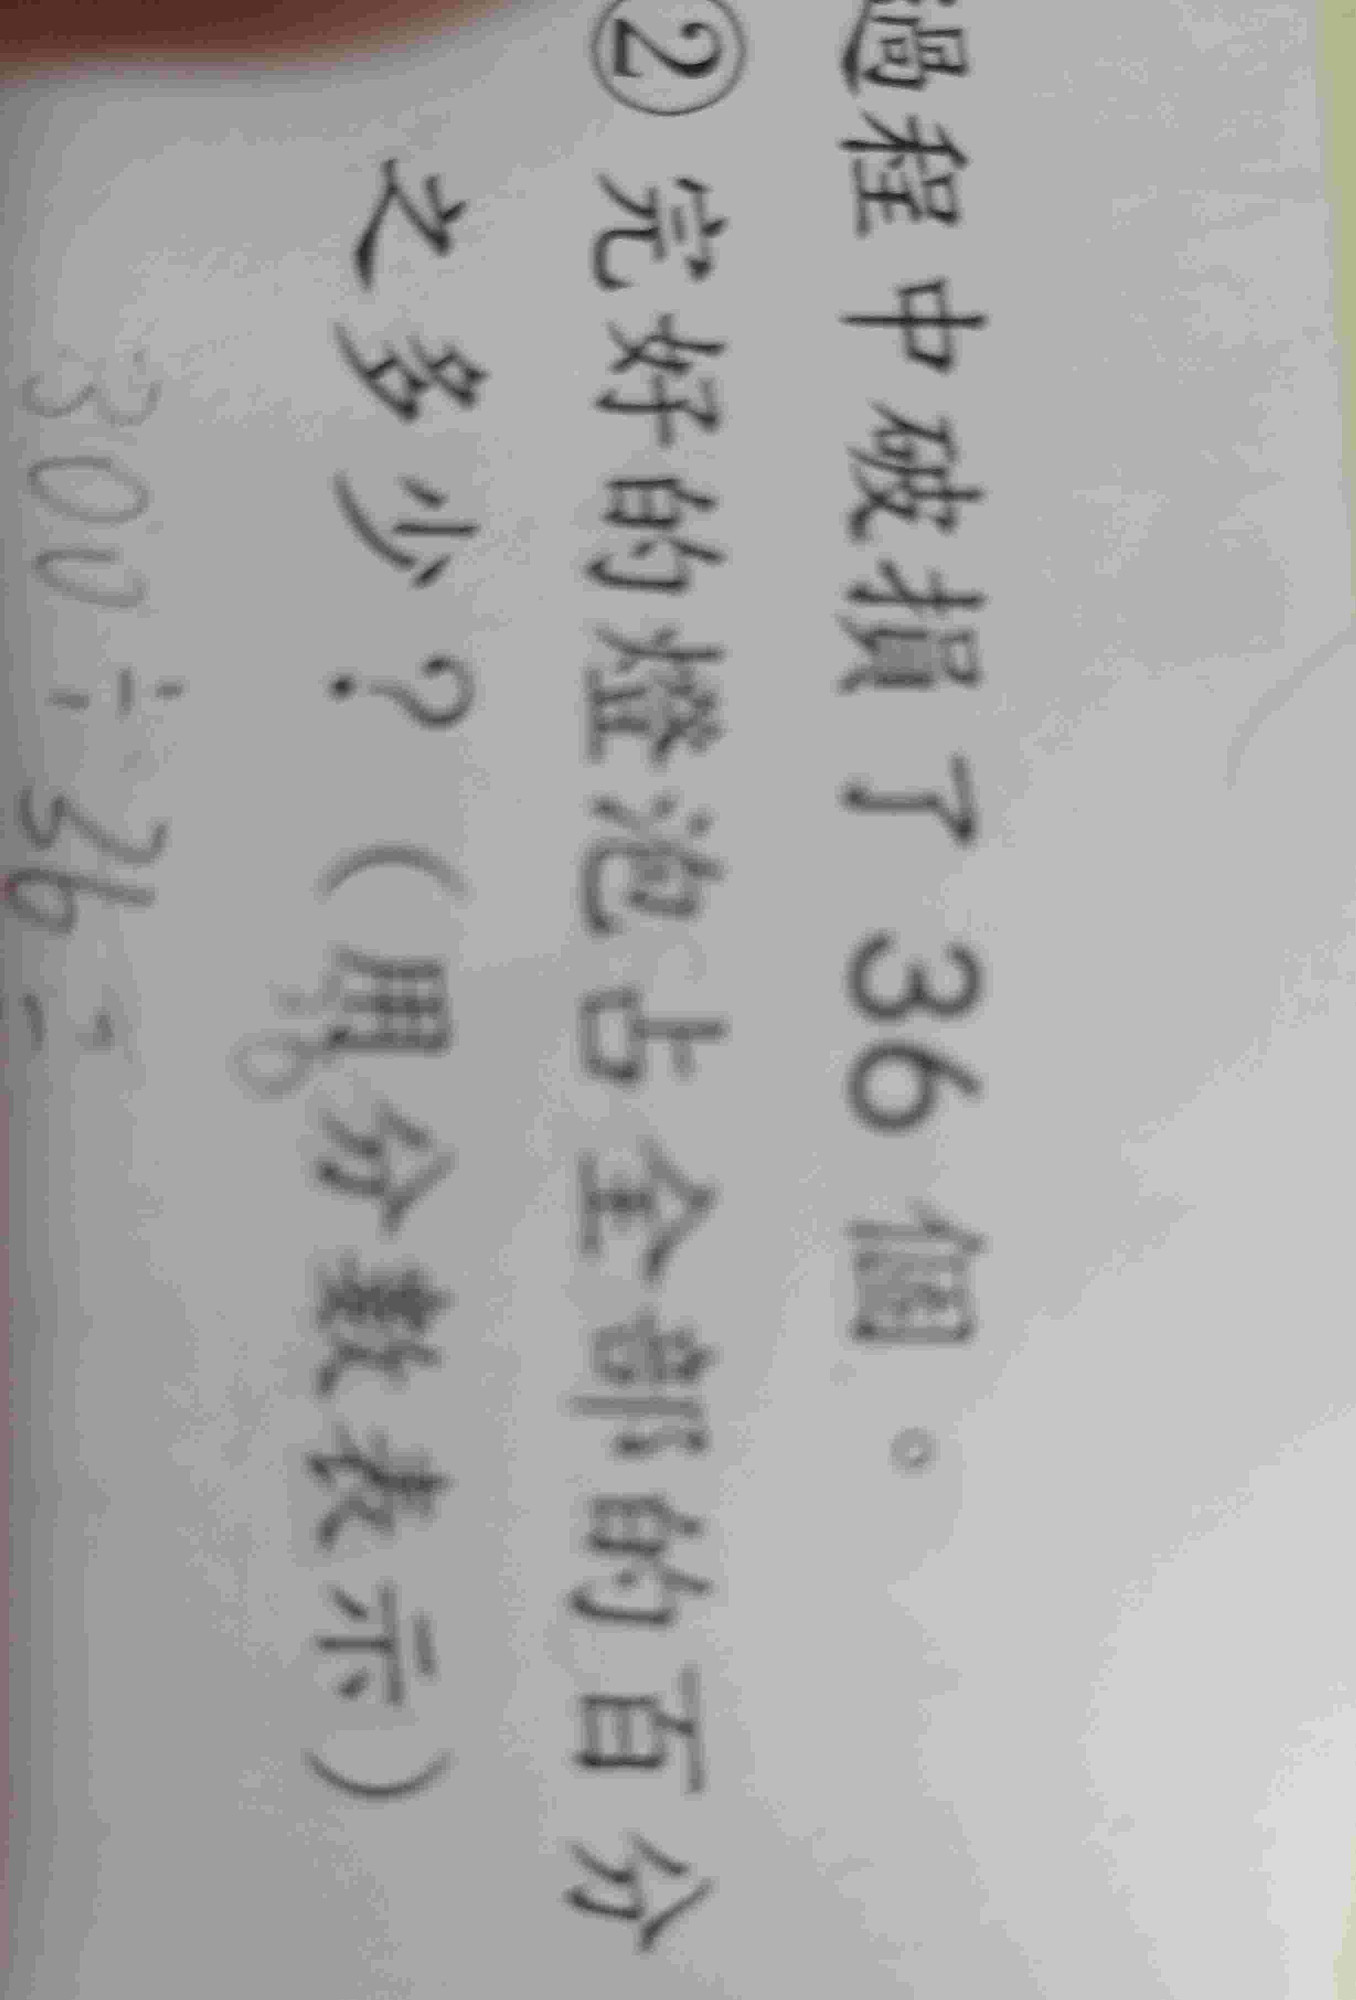 過程中破損了 36 個。
② 完好的燈泡占全部的百分
之多少？（用分數表示）
300 ÷ 36 =